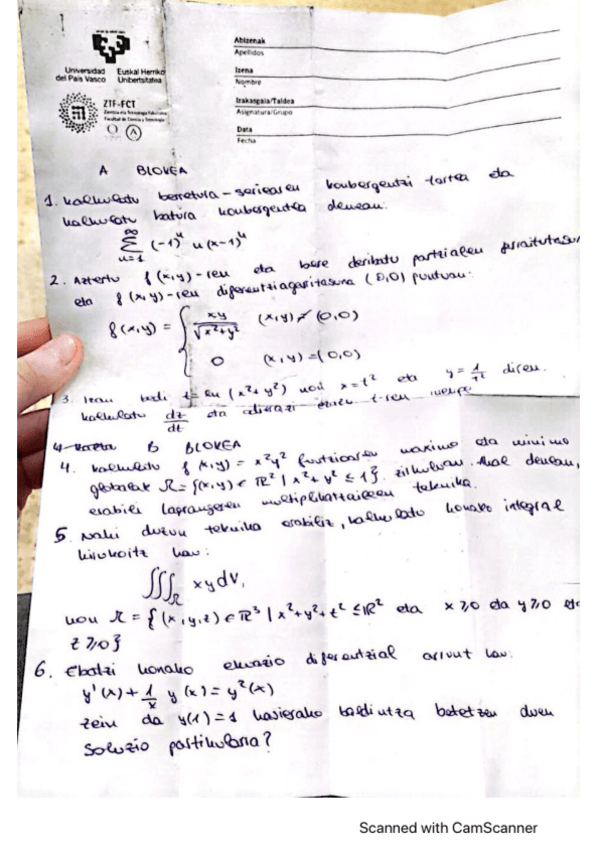 Universidad Euskal Herriko
del País Vasco Unibertsitatea
ZTF-FCT
Zientzia eta Teknologia Fakultatea
Facultad de Ciencia y Tecnología
Abizenak
Apellidos
Izena
Nombre
Irakasgaia/Taldea
Asignatura/Grupo
Data
Fecha
A BLOKEA
1. Kalkulatu berretura-seriearen konbergentzi tartea eta
kalkulatu batura konbergentea denean:
∑_{n=1}^{∞} (-1)^n n (x-1)^n
2. Aztertu f(x,y)-ren eta bere deribatu partzialen jarraitutasuna
eta f(x,y)-ren diferentziagarritasuna (0,0) puntuan:
f(x,y) = { xy/√(x²+y²) (x,y)≠(0,0)
0 (x,y)=(0,0)
3. Izan bedi z=ln(x²+y²) non x=t² eta y=1/t² diren.
Kalkulatu dz/dt eta adierazi t-ren
B BLOKEA
4. Kalkulatu f(x,y)=x²y² funtzioaren maximo eta minimo
globalak Ω={(x,y)∈ℝ² | x²+y² ≤1} zirkuluan. Ahal denean,
erabili Lagrangeren multiplikatzaileen teknika.
5. Nahi duzun teknika erabiliz, kalkulatu honako integral
hirukoitz hau:
∭_Ω xydV,
non Ω = {(x,y,z)∈ℝ³ | x²+y²+z² ≤R² eta x≥0 eta y≥0 eta
z≥0}
6. Ebatzi honako ekuazio diferentzial arrunt hau:
y'(x)+1/x y(x)=y²(x)
Zein da y(1)=1 hasierako baldintza betetzen duen
soluzio partikularra?
Scanned with CamScanner